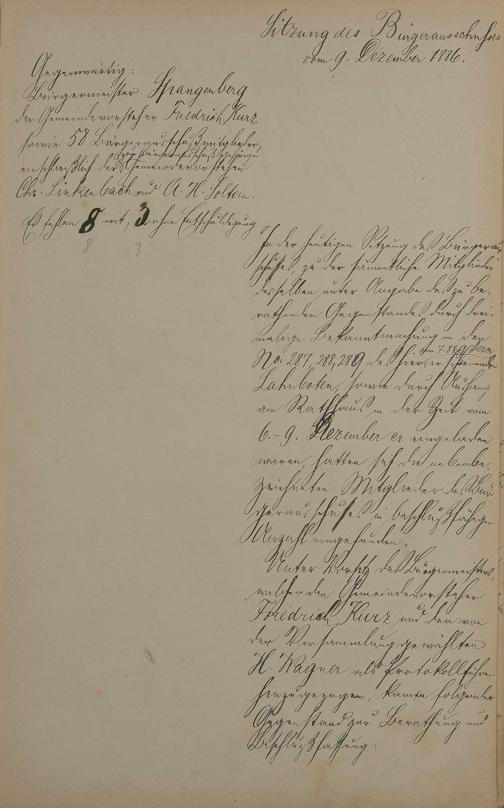 Sitzung des Bürgerausschusses
vom 9. Dezember 1886.
Gegenwärtig:
Bürgermeister Spangenberg
der Gemeindevorsteher Friedrich Kurz
sowie 58 Bürgerausschußmitglieder,
einschließlich der Gemeindevorsteher
Chr. Linkenbach und A. H. Soltau.
Es fehlen 8 mit, 3 ohne Entschuldigung
8 3.
In der heutigen Sitzung des Bürgeraus
schusses, zu der sämmtliche Mitglieder
desselben unter Angabe des zu be-
rathenden Gegenstandes durch drei-
malige Bekanntmachung in den
No. 287, 288, 289 des hier erscheinenden
Lahnboten, sowie durch Aushang
am Rathhaus in der Zeit vom
6.-9. Dezember cr eingeladen
waren, hatten sich die nebenbe
zeichneten Mitglieder des Bür
gerausschusses in beschlußfähiger
Anzahl eingefunden.
Unter Vorsitz des Bürgermeisters
welcher den Gemeindevorsteher
Friedrich Kurz und den von
der Versammlung gewählten
H. Wagner als Protokollführer
hinzugezogen, kamen folgender
Gegenstand zur Berathung und
Beschlußfassung: